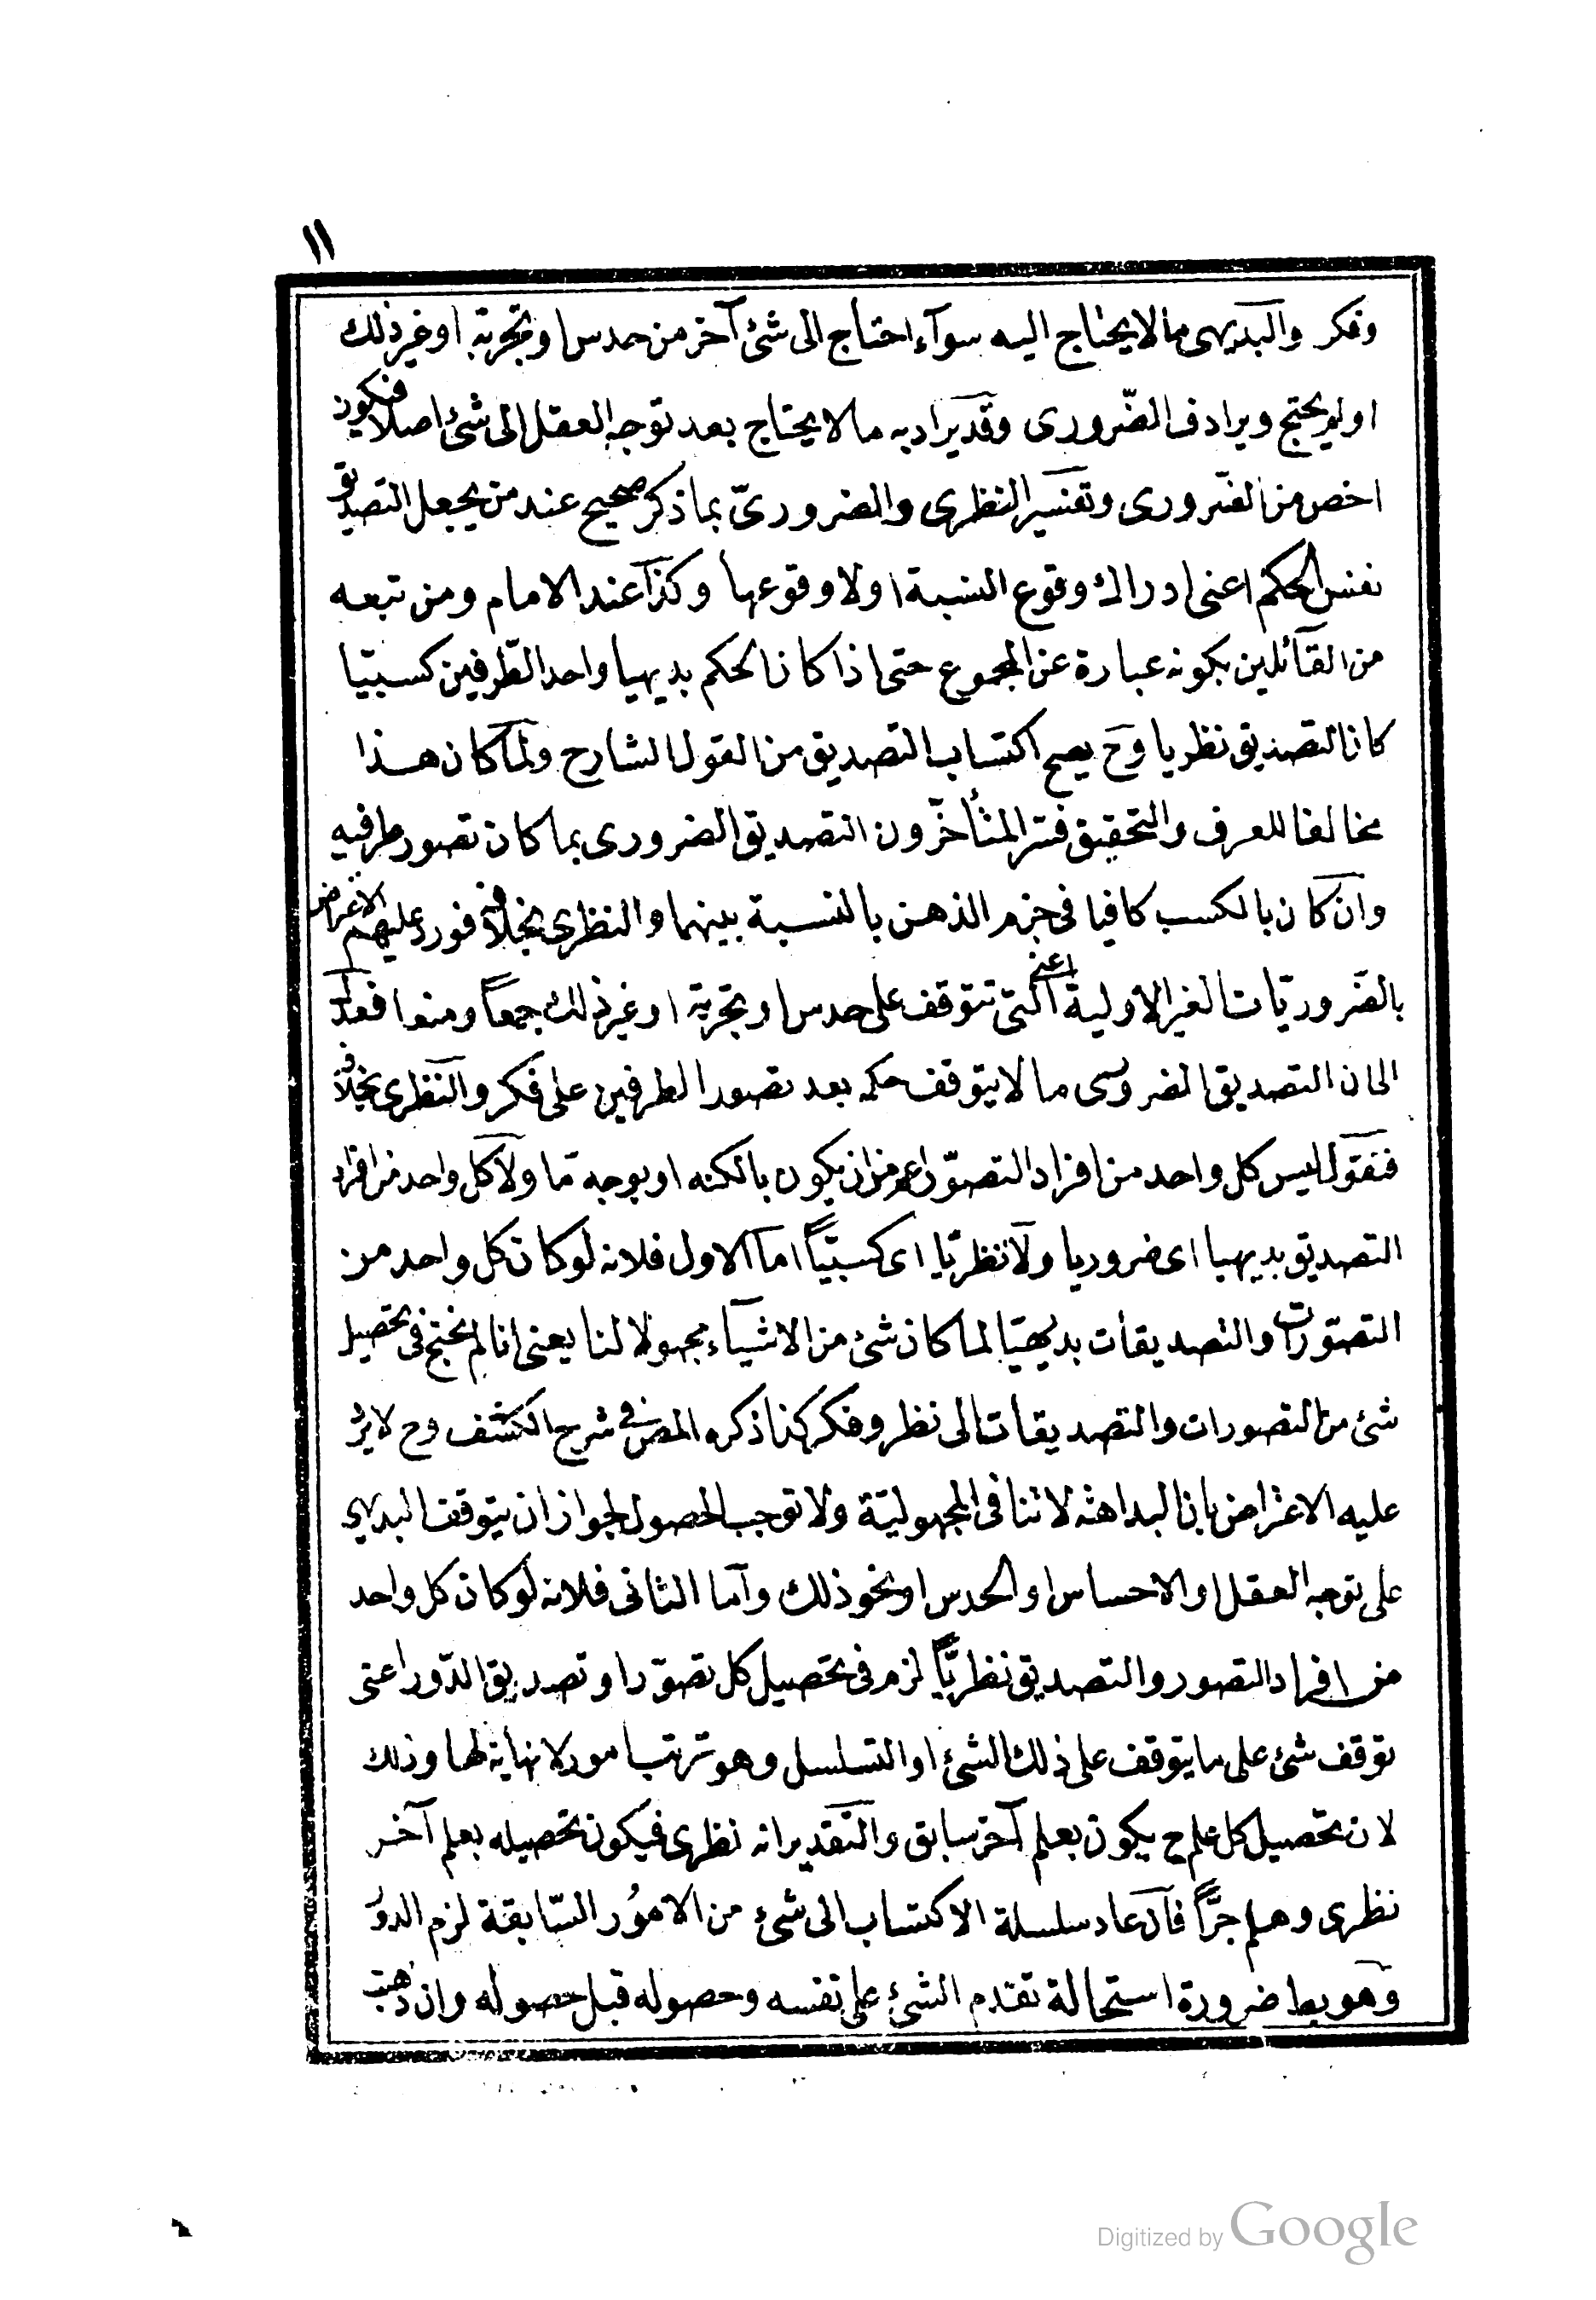 ١١
وفكر والبديهى ما لا يحتاج اليه سوآء احتاج الى شئ آخر من حدس او تجربة او غير ذلك
او لم يحتج ويرادف الضّرورى وقد يراد به ما لا يحتاج بعد توجه العقل الى شئ اصلا فيكون
اخص من الضّرورى وتفسير النظرى والضرورىّ بما ذكر صحيح عند من يجعل التصديق
نفس الحكم اعنى ادراك وقوع النسبة او لا وقوعها وكذا عند الامام ومن تبعه
من القآئلين بكونه عبارة عن المجموع حتى اذا كان الحكم بديهيا واحد الطّرفين كسبيّا
كان التصديق نظريا وح يصح اكتساب التصديق من القول الشارح ولمّا كان هذا
مخالفا للعرف والتحقيق فسّر المتأخّرون التصديق الضرورى بما كان تصور طرفيه
وان كان بالكسب كافيا فى جزم الذهن بالنسبة بينهما والنظرى بخلافه فورد عليهم الاعتراض
بالضّروريّات الغير الاولية اعنى التى تتوقف على حدس او تجربة او غير ذلك جمعاً ومنعا فعدل
الى ان التصديق الضرورى ما لا يتوقف حكمه بعد تصور الطرفين على فكر والنّظرى بخلافه
فنقول ليس كل واحد من افراد التصوّر اعم من ان يكون بالكنه او بوجه مّا ولا كل واحد من افراد
التصديق بديهيا اى ضروريا ولا نظريّا اى كسبيّاً امّا الاول فلانه لو كان كل واحد من
التصوّرات والتصديقات بديهيّا لما كان شئ من الاشيآء مجهولا لنا يعنى انا لم نحتج فى تحصيل
شئ من التصورات والتصديقات الى نظر وفكر كذا ذكره المص فى شرح الكشف وح لا يرد
عليه الاعتراض بان البداهة لا تنافى المجهوليّة ولا توجب الحصول لجواز ان يتوقف البديهى
على توجه العقل او الاحساس او الحدس او نحو ذلك وآما الثانى فلانه لو كان كل واحد
من افراد التصور والتصديق نظريّاً لزم فى تحصيل كل تصوّر او تصديق الدّور اعنى
توقف شئ على ما يتوقف على ذلك الشئ او التسلسل وهو ترتب امور لا نهاية لها وذلك
لان تحصيل كل علم ح يكون بعلم آخر سابق والتّقدير انه نظرى فيكون تحصيله بعلم آخر
نظرى وهلم جرّاً فان عاد سلسلة الاكتساب الى شئ من الامُور السّابقة لزم الدور
وهو بط ضرورة استحالة تقدم الشئ على نفسه وحصوله قبل حصوله وان ذهبت
Digitized by Google